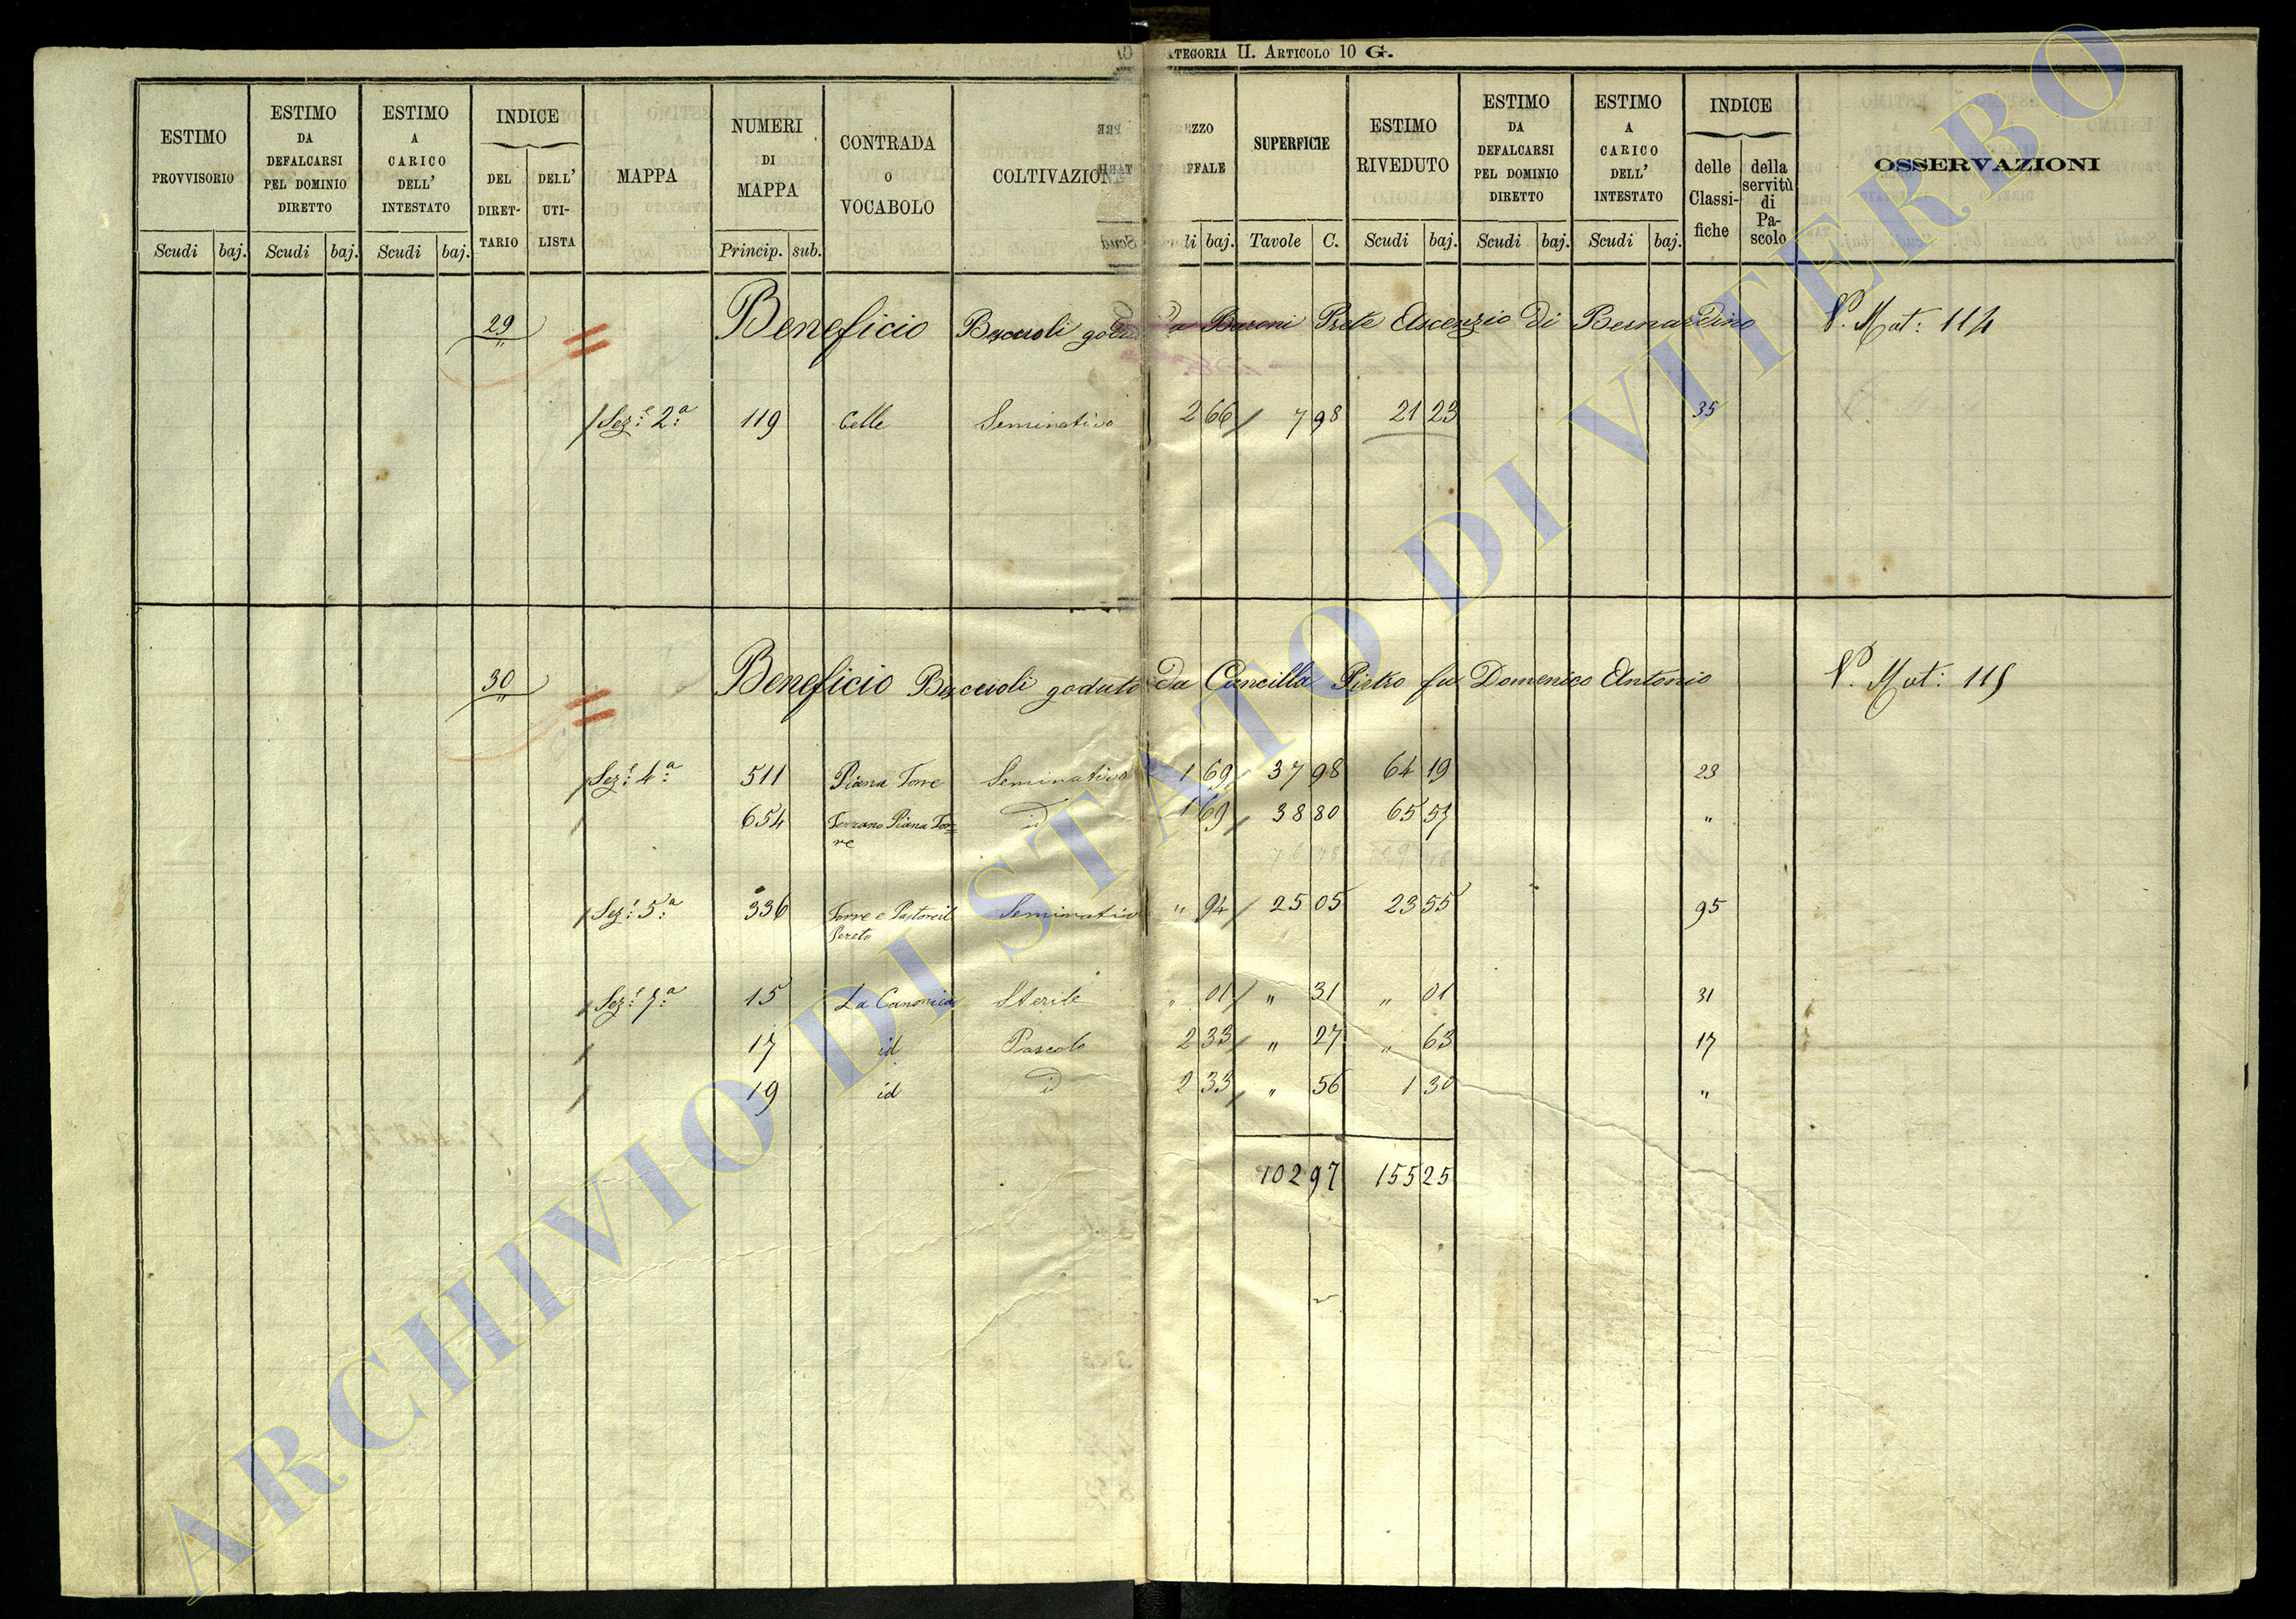 CATEGORIA II. ARTICOLO 10 G.
ESTIMO PROVVISORIO | ESTIMO DA DEFALCARSI PEL DOMINIO DIRETTO | ESTIMO A CARICO DELL' INTESTATO | INDICE | MAPPA | NUMERI DI MAPPA | CONTRADA O VOCABOLO | COLTIVAZIONE | SUPERFICIE | ESTIMO RIVEDUTO | ESTIMO DA DEFALCARSI PEL DOMINIO DIRETTO | ESTIMO A CARICO DELL' INTESTATO | INDICE | OSSERVAZIONI
DEL DIRETTARIO | DELL' UTILISTA | delle Classifiche | della servitù di Pascolo
Scudi baj. | Scudi baj. | Scudi baj. | Princip. sub. | baj. | Tavole C. | Scudi baj. | Scudi baj. | Scudi baj.
29 Beneficio Buccioli goduto da Baroni Prete Ascenzio di Bernardino N. Mat: 114
Sez.e 2.a 119 Celle Seminativo 2 66 7 98 21 23 35
30 Beneficio Buccioli goduto da Cancilla Pietro fu Domenico Antonio N. Mat: 115
Sez.e 4.a 511 Piana Torre Seminativo 1 69 37 98 64 19 23
654 Terrano Piana Tor= id 1 69 38 80 65 57 "
re
76 78
Sez.e 5.a 336 Torre e Seminativo " 94 25 05 23 55 95
Pereto
Sez.e 7.a 15 La Canonica Sterile " 01 " 31 " 01 31
17 id Pascolo 2 33 " 27 " 63 17
19 id id 2 33 " 56 1 30 "
102 97 155 25
ARCHIVIO DI STATO DI VITERBO